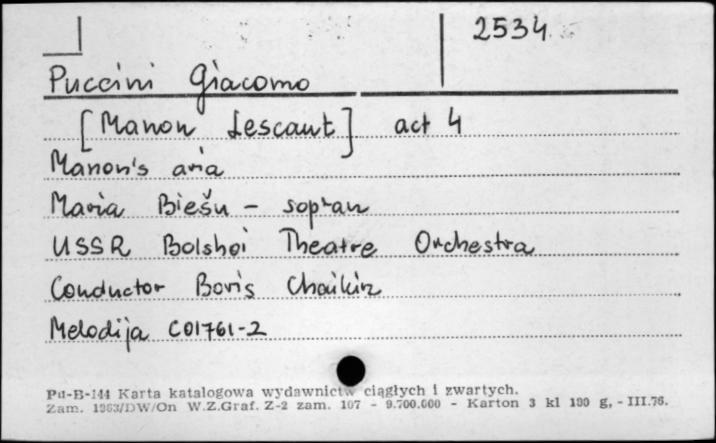 2534
Puccini Giacomo
[Manon Lescaut] act 4
Manon's aria
Maria Biešu - sopran
USSR Bolshoi Theatre Orchestra
Conductor Boris Chaikin
Melodija C01761-2
Pu-B-144 Karta katalogowa wydawnictw ciągłych i zwartych.
Zam. 1963/DW/On W.Z.Graf. Z-2 zam. 107 - 9.700.000 - Karton 3 kl 190 g, - III.76.